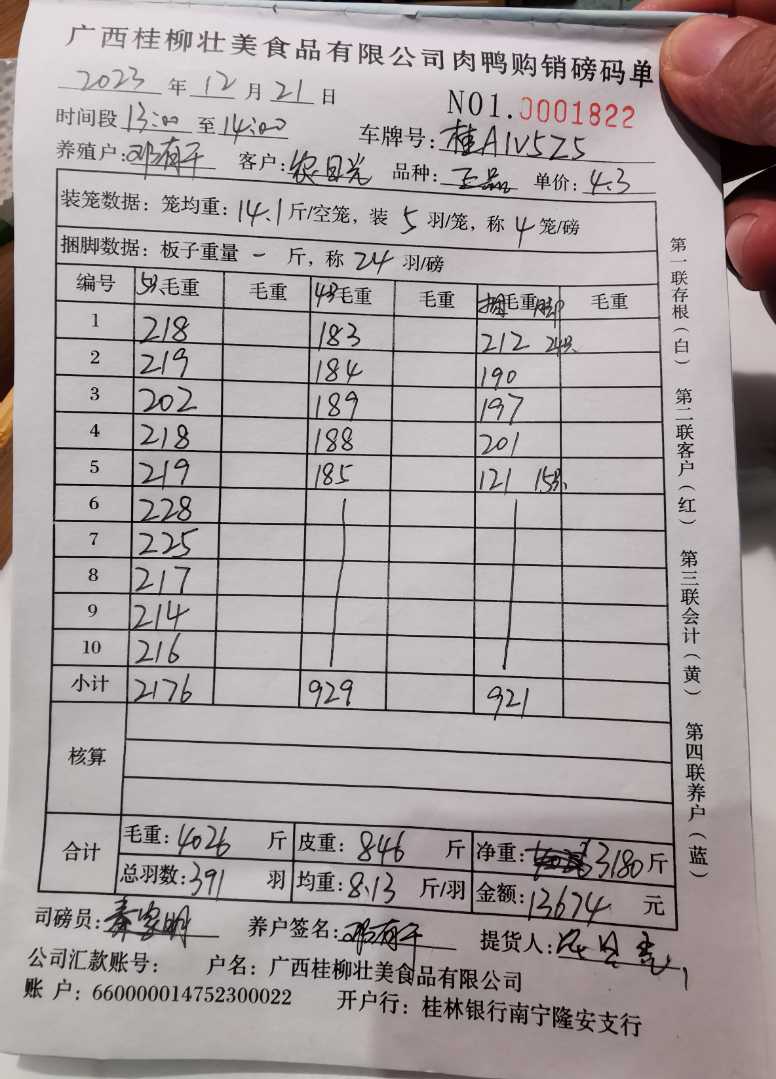 广西桂柳壮美食品有限公司肉鸭购销磅码单
2023 年 12 月 21 日 NO1.0001822
时间段 13:00 至 14:00 车牌号: 桂A1V5Z5
养殖户: 邓有干 客户: 农日光 品种: 王品 单价: 4.3
装笼数据: 笼均重: 14.1 斤/空笼, 装 5 羽/笼, 称 4 笼/磅
捆脚数据: 板子重量 一 斤, 称 24 羽/磅
编号 5只毛重 毛重 4只毛重 毛重 捆毛重脚 毛重
1 218 183 212 24只
2 219 184 190
3 202 189 197
4 218 188 201
5 219 185 121 15只
6 228
7 225
8 217
9 214
10 216
小计 2176 929 921
核算
合计 毛重: 4026 斤 皮重: 846 斤 净重: 3180 斤
总羽数: 391 羽 均重: 8.13 斤/羽 金额: 13674 元
司磅员: 养户签名: 邓有干 提货人:
公司汇款账号: 户名: 广西桂柳壮美食品有限公司
账 户: 660000014752300022 开户行: 桂林银行南宁隆安支行
第一联存根(白) 第二联客户(红) 第三联会计(黄) 第四联养户(蓝)